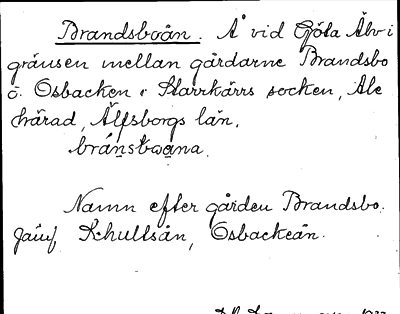 Brandsboån. Å vid Göta Älv i
gränsen mellan gårdarne Brandsbo
o. Osbacken i Starrkärrs socken, Ale
härad, Älfsborgs län.
bránsbωa̱na.
Namn efter gården Brandsbo.
Jämf. Schullsån, Osbackeån.